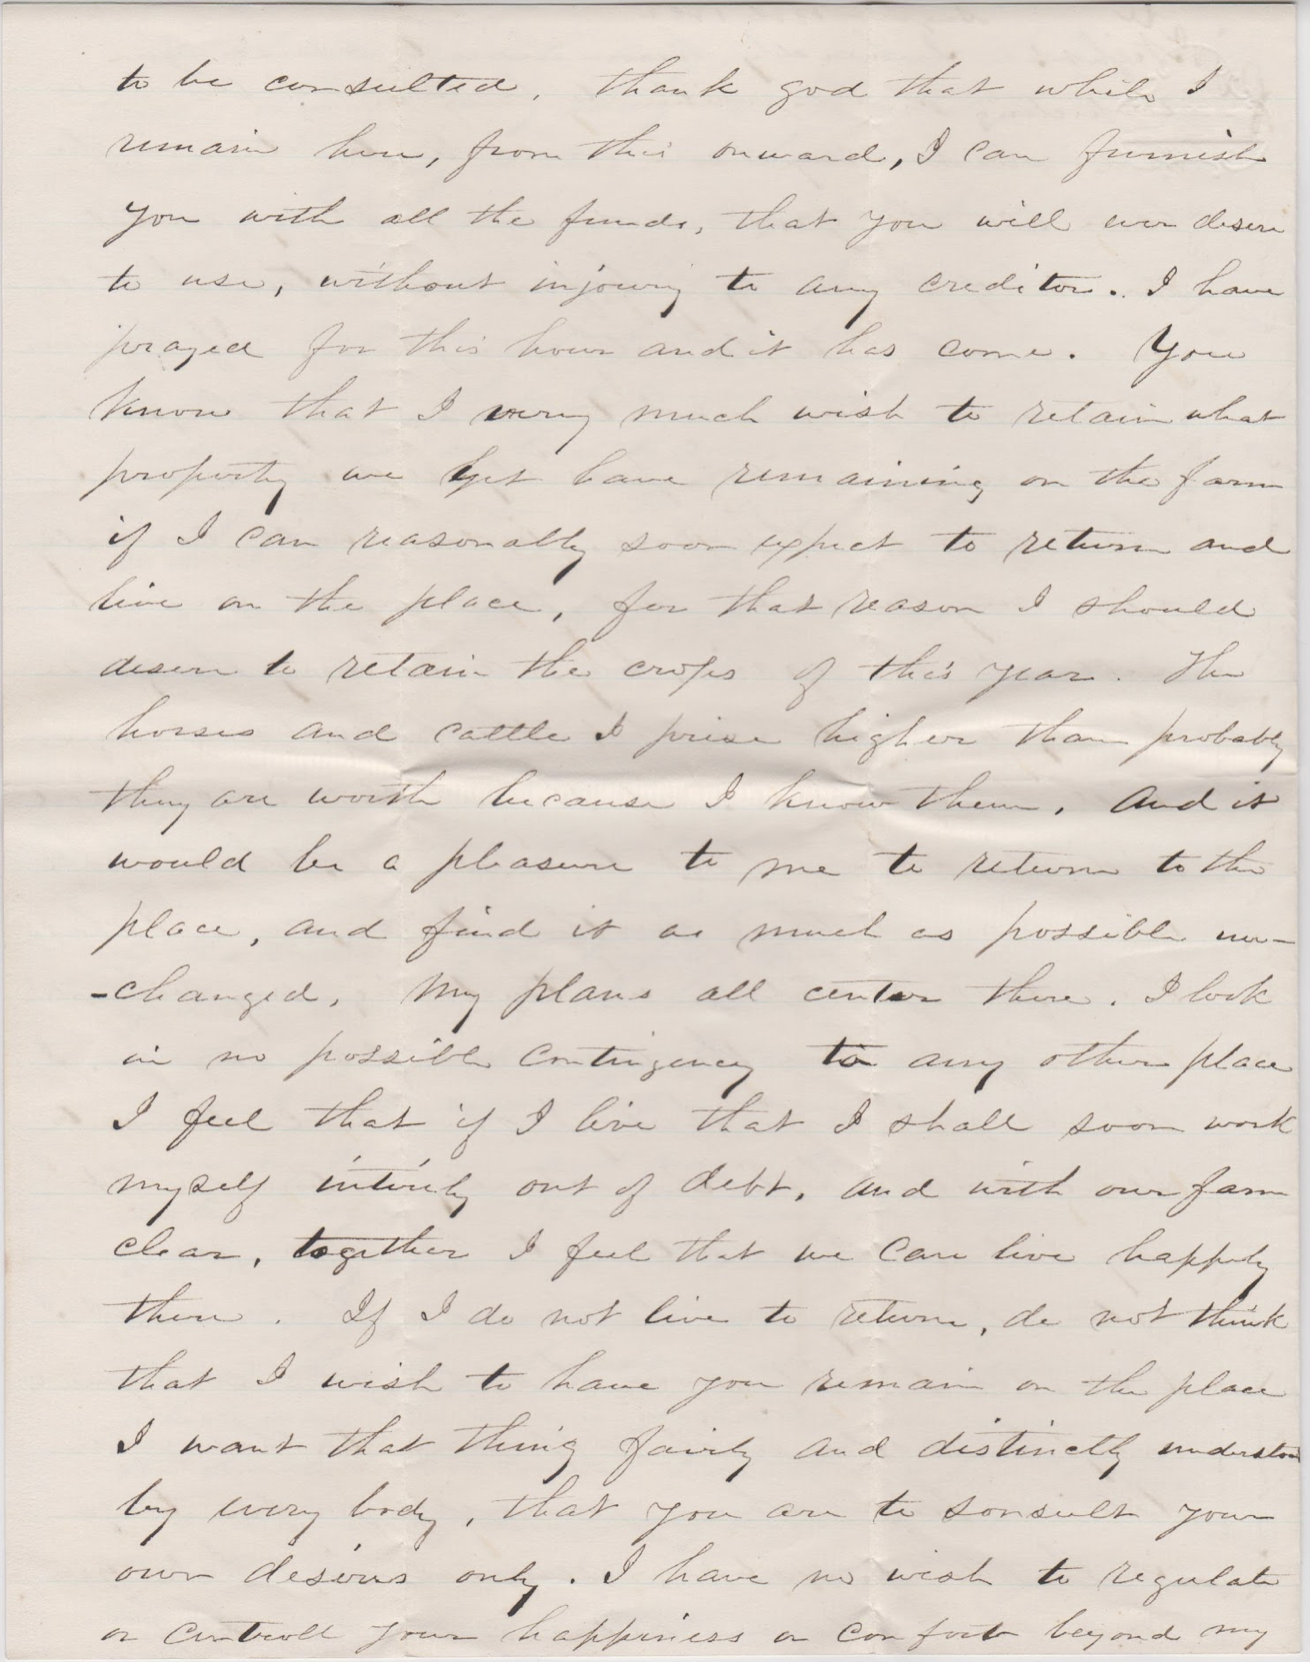 to be consulted, thank god that while I
remain here, from this onward, I can furnish
you with all the funds, that you will ever desire
to use, without injouring to any creditor. I have
prayed for this hour and it has come. You
know that I very much wish to retain what
property we yet have remaining on the farm
if I can reasonably soon expect to return and
live on the place, for that reason I should
desire to retain the crops of this year. The
horses and cattle I prise higher than probably
they are worth because I know them. And it
would be a pleasure to me to return to the
place, and find it as much as possible un-
-changed. My plans all center there. I look
in no possible contingency to any other place
I feel that if I live that I shall soon work
myself intirely out of debt, and with our farm
clear, together I feel that we can live happily
there. If I do not live to return, do not think
that I wish to have you remain on the place
I want that thing fairly and distinctly understood
by every body, that you are to consult your
own desires only. I have no wish to regulate
or controll your happiness or comfort beyond my